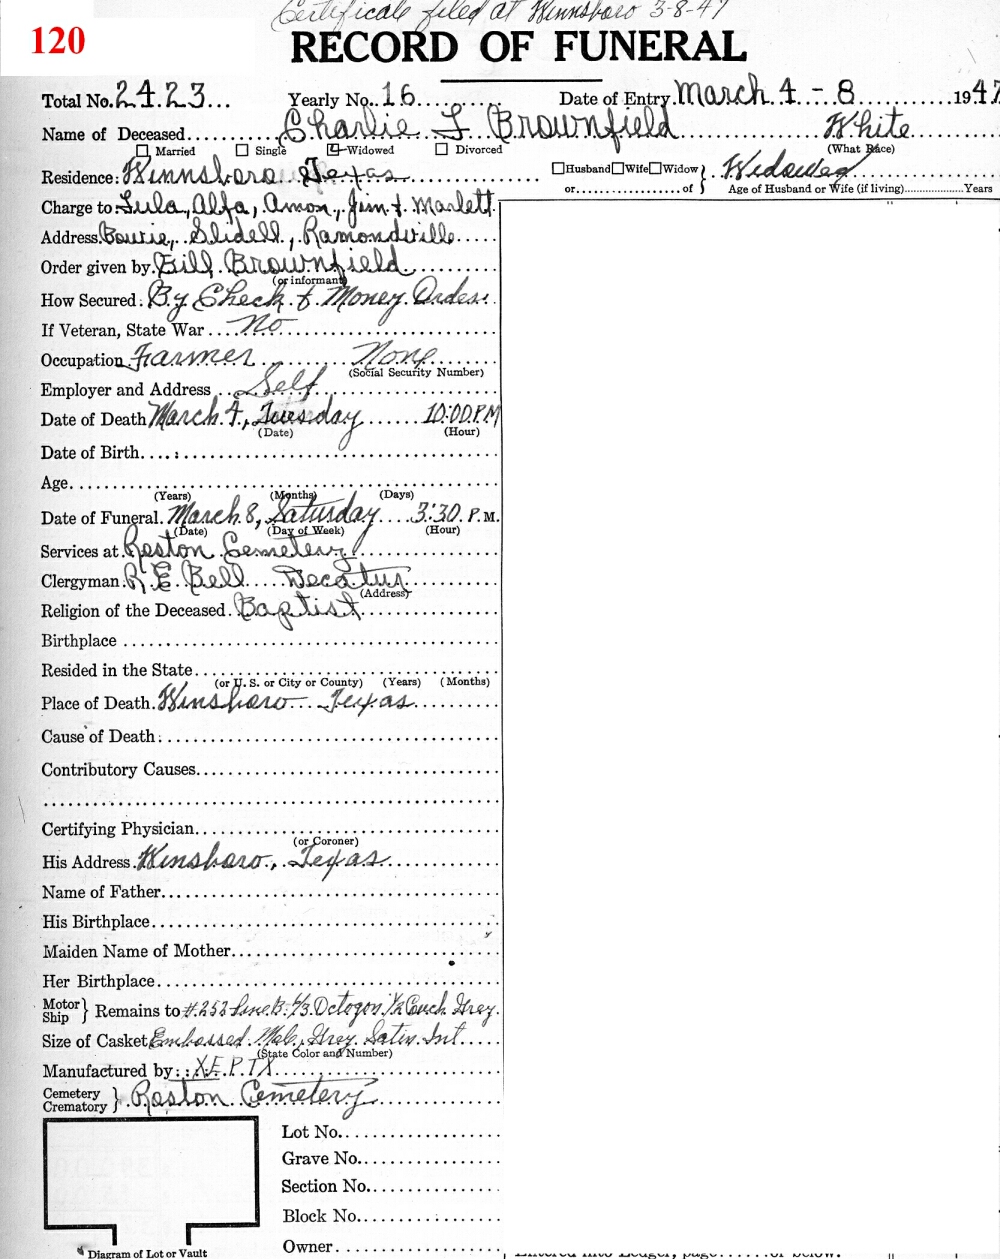 Certificate filed at Winnsboro 3-8-47
120
RECORD OF FUNERAL
Total No. 2423... Yearly No. 16........ Date of Entry March 4 - 8............1947
Name of Deceased............Charlie L Brownfield..................White
☐ Married ☐ Single ☑ Widowed ☐ Divorced (What Race)
Residence: Winnsboro Texas................ ☐ Husband ☐ Wife ☐ Widow } Widowed
or.....................of Age of Husband or Wife (if living)....................Years
Charge to: Lula, Alfa, Amon, Jim & Marlett
Address Bowie, Slidell, Ramondville.....
Order given by: Bill Brownfield................
(or informant)
How Secured: By Check & Money Order
If Veteran, State War....No
Occupation Farmer None
(Social Security Number)
Employer and Address ...Self
Date of Death March 4, Tuesday ......10:00 P.M
(Date) (Hour)
Date of Birth....:
Age
(Years) (Months) (Days)
Date of Funeral. March 8, Saturday....3:30 P.M.
(Date) (Day of Week) (Hour)
Services at Roston Cemetery
Clergyman: R.E. Bell.... Decatur
(Address)
Religion of the Deceased. Baptist
Birthplace
Resided in the State
(or U. S. or City or County) (Years) (Months)
Place of Death. Winsboro... Texas
Cause of Death:
Contributory Causes
Certifying Physician
(or Coroner)
His Address. Winsboro., Texas
Name of Father
His Birthplace
Maiden Name of Mother
Her Birthplace
Motor Ship } Remains to #252 6/3 Octogon 1/2 Couch Grey
Size of Casket Embossed Grey Satin Int
(State Color and Number)
Manufactured by:
Cemetery Crematory } Roston Cemetery
Lot No.
Grave No.
Section No.
Block No.
Owner
Diagram of Lot or Vault